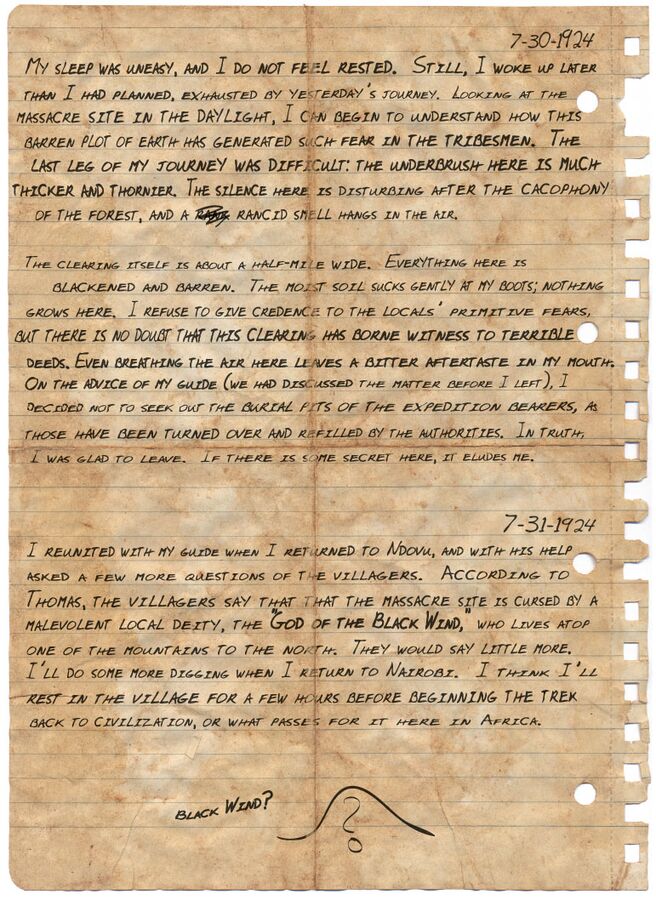 7-30-1924
My sleep was uneasy, and I do not feel rested. Still, I woke up later
than I had planned, exhausted by yesterday's journey. Looking at the
massacre site in the daylight, I can begin to understand how this
barren plot of earth has generated such fear in the tribesmen. The
last leg of my journey was difficult: the underbrush here is much
thicker and thornier. The silence here is disturbing after the cacophony
of the forest, and a rancid smell hangs in the air.
The clearing itself is about a half-mile wide. Everything here is
blackened and barren. The moist soil sucks gently at my boots; nothing
grows here. I refuse to give credence to the locals' primitive fears,
but there is no doubt that this clearing has borne witness to terrible
deeds. Even breathing the air here leaves a bitter aftertaste in my mouth.
On the advice of my guide (we had discussed the matter before I left), I
decided not to seek out the burial pits of the expedition bearers, as
those have been turned over and refilled by the authorities. In truth,
I was glad to leave. If there is some secret here, it eludes me.
7-31-1924
I reunited with my guide when I returned to Ndovu, and with his help
asked a few more questions of the villagers. According to
Thomas, the villagers say that that the massacre site is cursed by a
malevolent local deity, the "God of the Black Wind," who lives atop
one of the mountains to the north. They would say little more.
I'll do some more digging when I return to Nairobi. I think I'll
rest in the village for a few hours before beginning the trek
back to civilization, or what passes for it here in Africa.
Black Wind?